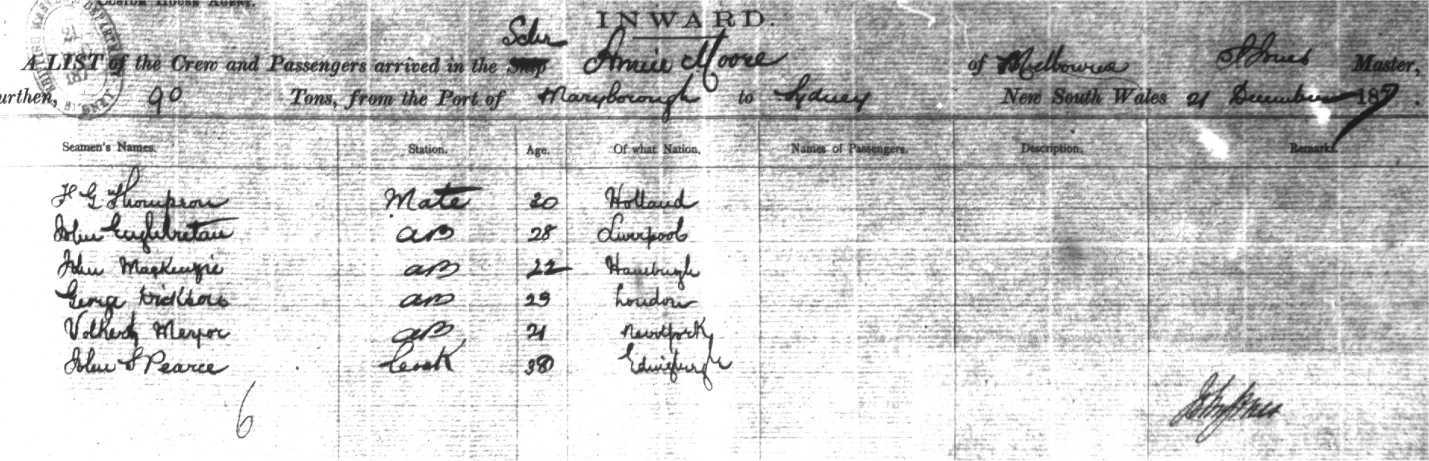 CUSTOM HOUSE AGENT.
INWARD.
A LIST of the Crew and Passengers arrived in the Ship Schr Annie Moore of Melbourne J Jones Master,
urthen, 90 Tons, from the Port of Maryborough to Sydney New South Wales 21 December 187
Seamen's Names. Station. Age. Of what Nation. Names of Passengers. Description. Remarks
G Thompson Mate 20 Holland
John AB 28 Liverpool
John MacKenzie AB 22 Hamburgh
George Dickson AB 29 London
AB 21 Newyork
John S Pearce Cook 38 Edingburgh
6
John Jones